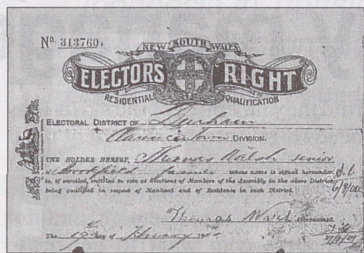 No. 313760.
NEW SOUTH WALES
ELECTORS RIGHT
RESIDENTIAL QUALIFICATION
ELECTORAL DISTRICT OF Durham
DIVISION.
THE HOLDER HEREOF, Thomas Walsh senior
of Brookfield farmer whose name is signed hereunder
is, if enrolled, entitled to vote at Elections of Members of the Assembly in the above District,
being qualified in respect of Manhood and of Residence in such District.
Thomas
The day of